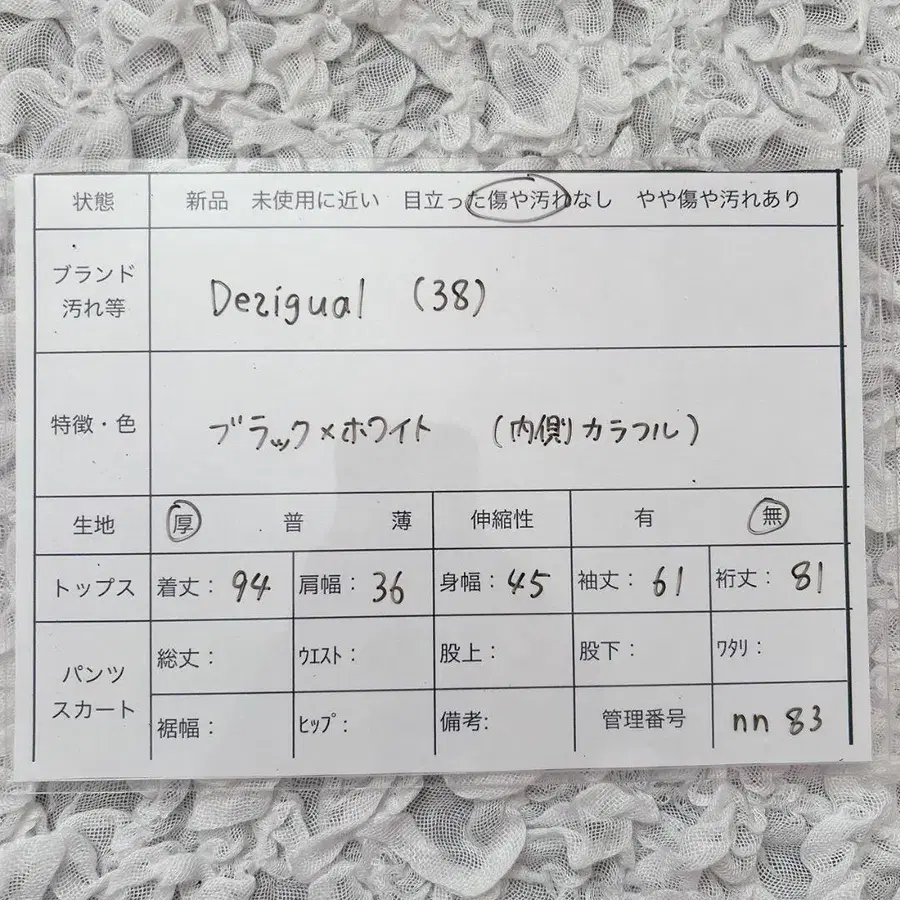 状態 新品 未使用に近い 目立った傷や汚れなし やや傷や汚れあり
ブランド
汚れ等
Desigual (38)
特徴・色 ブラック×ホワイト (内側カラフル)
生地 厚 普 薄 伸縮性 有 無
トップス 着丈: 94 肩幅: 36 身幅: 45 袖丈: 61 裄丈: 81
パンツ
スカート
総丈: ウエスト: 股上: 股下: ワタリ:
裾幅: ヒップ: 備考: 管理番号 nn 83